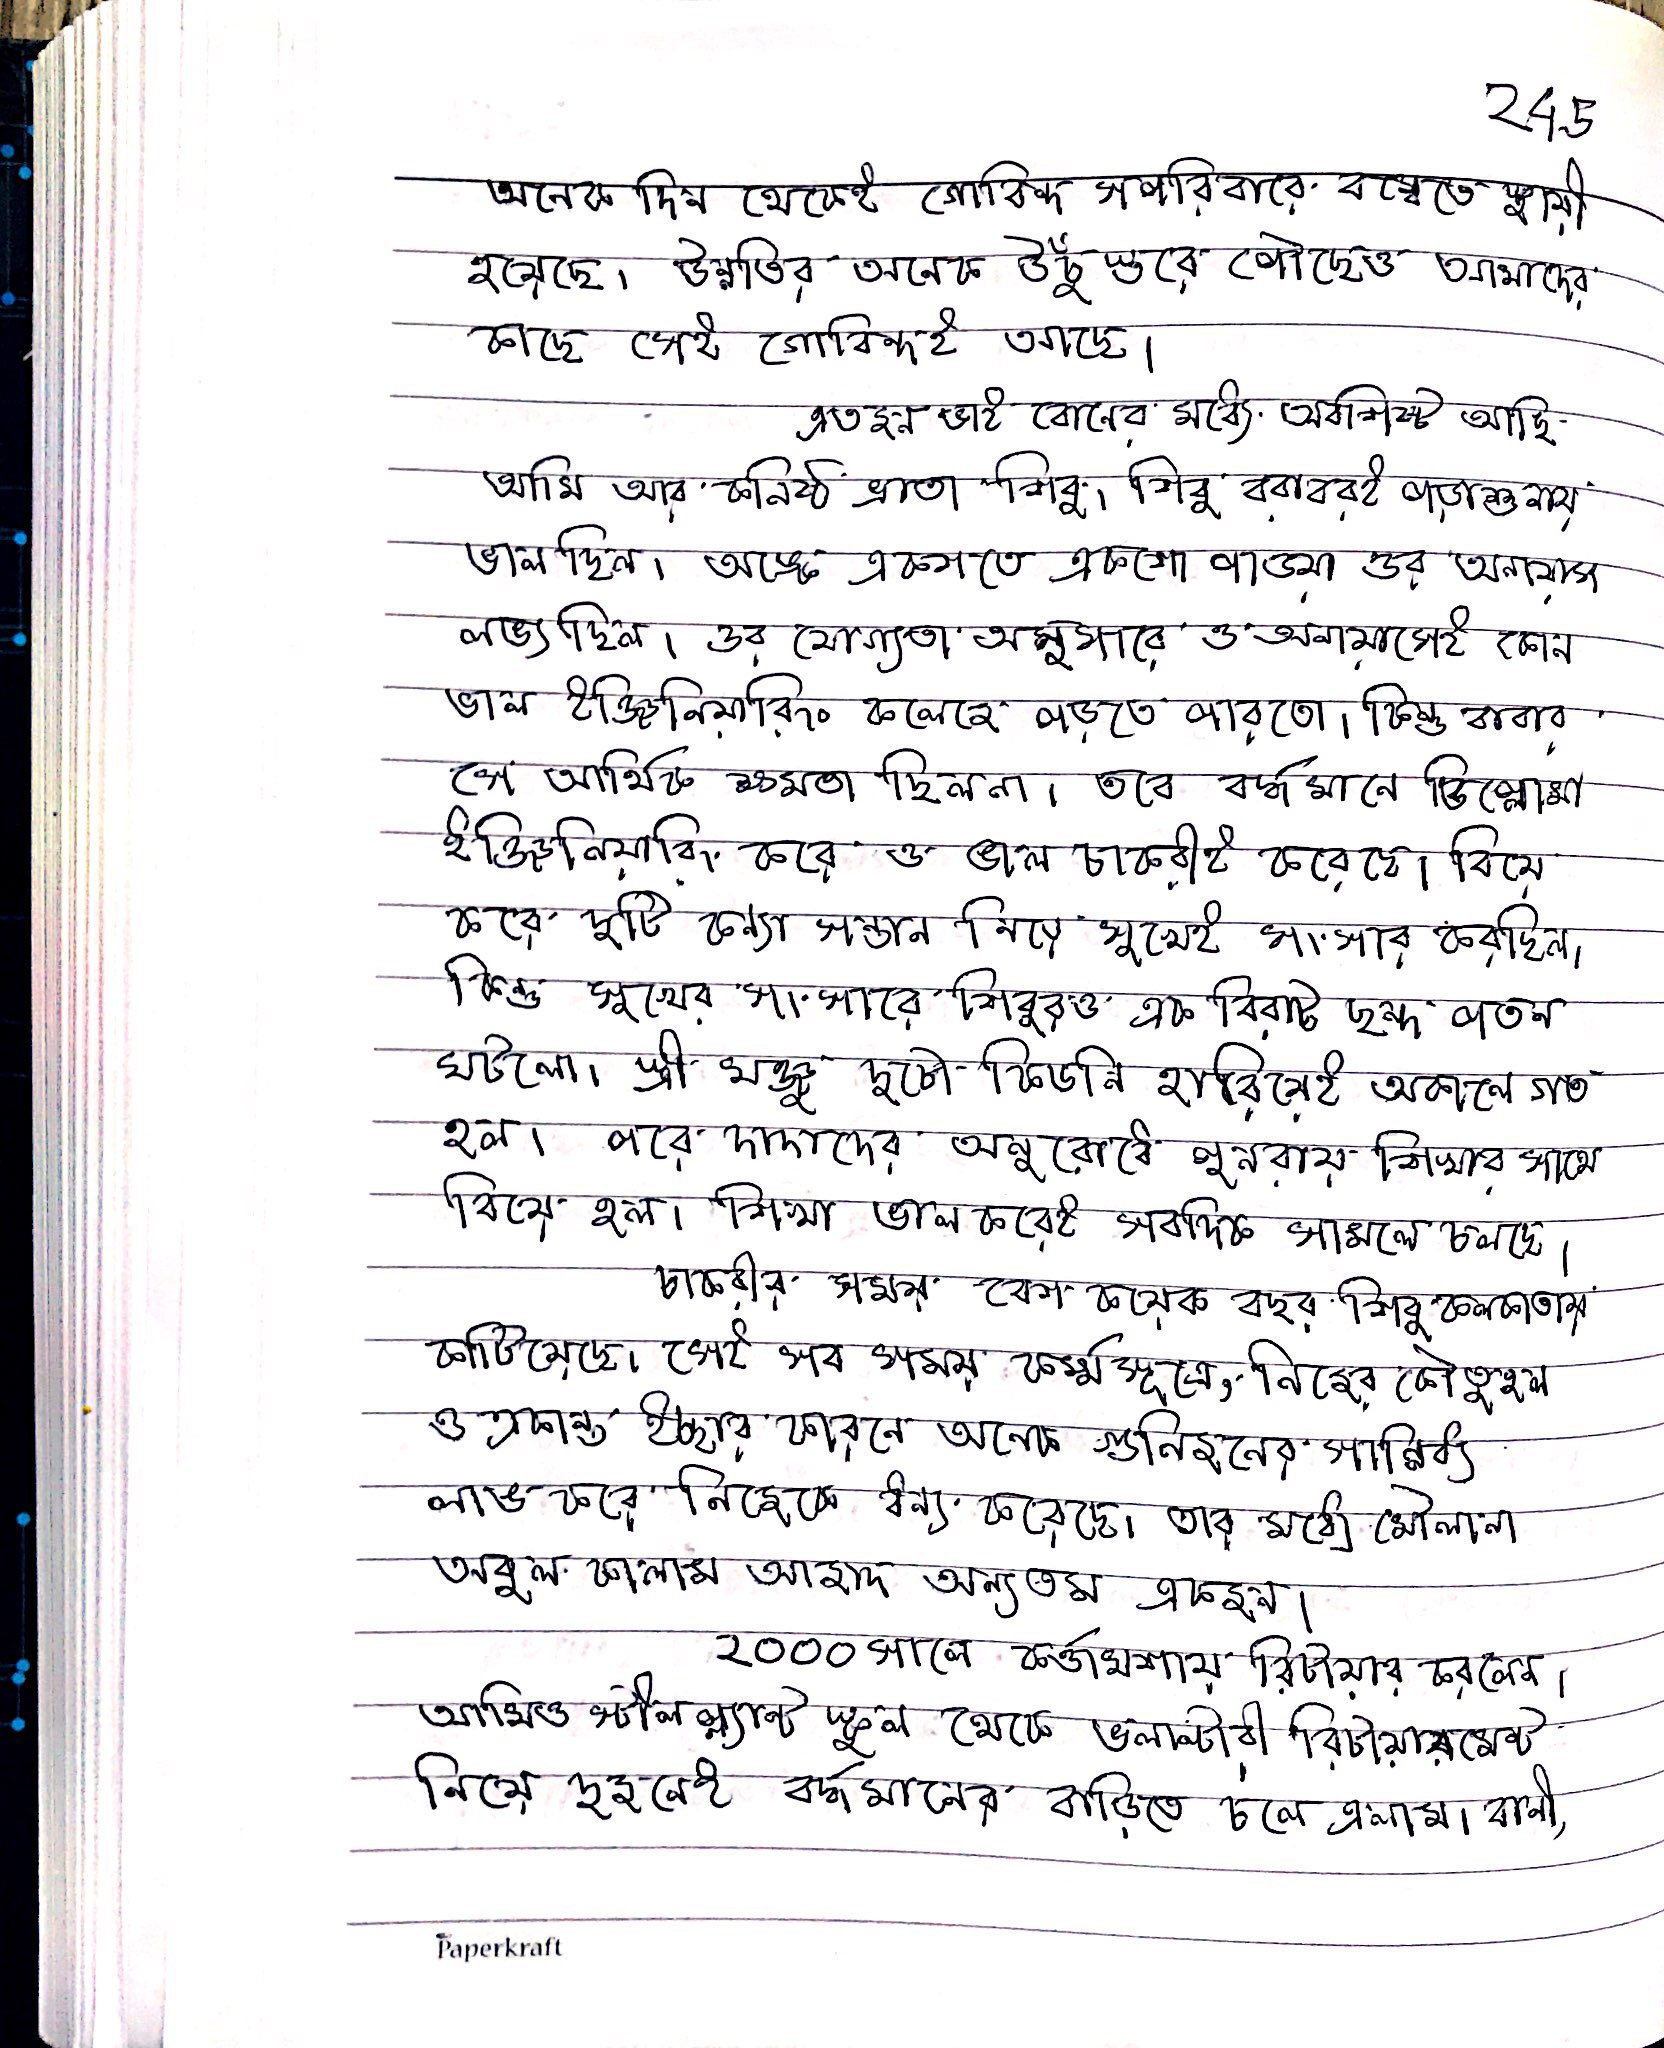 245
অনেক দিন থেকেই গোবিন্দ সপরিবারে বম্বেতে স্থায়ী
হয়েছে। উন্নতির অনেক উঁচু স্তরে পৌছেও আমাদের
কাছে সেই গোবিন্দই আছে।
এতজন ভাই বোনের মধ্যে অবশিষ্ট আছি
আমি আর কনিষ্ঠ ভ্রাতা শিবু। শিবু বরাবরই পড়াশুনায়
ভাল ছিল। অঙ্কে একশতে একশো পাওয়া ওর অনায়াস
লভ্য ছিল। ওর যোগ্যতা অনুসারে ও অনায়াসেই কোন
ভাল ইঞ্জিনিয়ারিং কলেজে পড়তে পারতো। কিন্তু বাবার
সে আর্থিক ক্ষমতা ছিলনা। তবে বর্দ্ধমানে ডিপ্লোমা
ইঞ্জিনিয়ারিং করে ও ভাল চাকরীই করেছে। বিয়ে
করে দুটি কন্যা সন্তান নিয়ে সুখেই সংসার করছিল।
কিন্তু সুখের সংসারে শিবুরও এক বিরাট ছন্দ পতন
ঘটলো। স্ত্রী মঞ্জু দুটো কিডনি হারিয়েই অকালে গত
হল। পরে দাদাদের অনুরোধে পুনরায় শিখার সাথে
বিয়ে হল। শিখা ভাল করেই সবদিক সামলে চলছে।
চাকরীর সময় বেশ কয়েক বছর শিবু কলকাতায়
কাটিয়েছে। সেই সব সময় কর্ম্মসূত্রে, নিজের কৌতুহল
ও একান্ত ইচ্ছার কারনে অনেক গুনিজনের সান্নিধ্য
লাভ করে নিজেকে ধন্য করেছে। তার মধ্যে মৌলানা
আবুল কালাম আজাদ অন্যতম একজন।
২০০০ সালে কর্ত্তামশায় রিটায়ার করলেন।
আমিও স্টীল প্ল্যান্ট স্কুল থেকে ভলান্টারী রিটায়ারমেন্ট
নিয়ে দুজনেই বর্দ্ধমানের বাড়িতে চলে এলাম। বানী,
Paperkraft